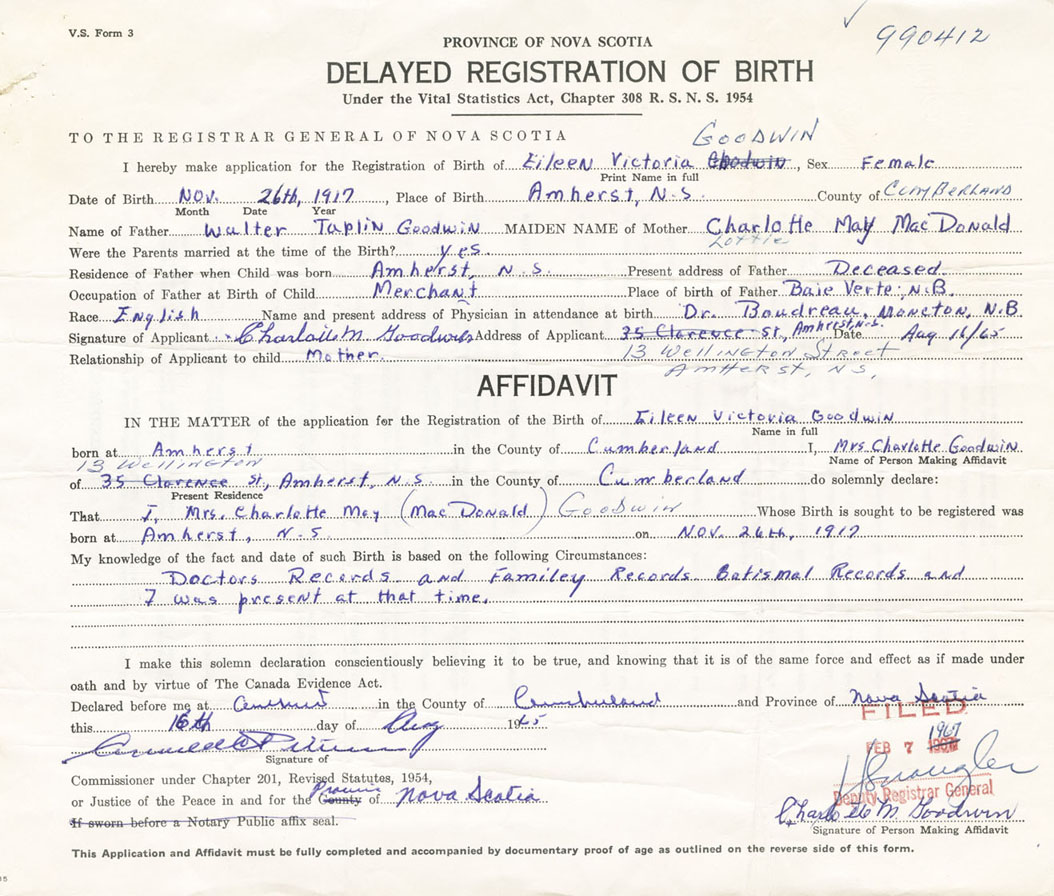 V.S. Form 3
990412
PROVINCE OF NOVA SCOTIA
DELAYED REGISTRATION OF BIRTH
Under the Vital Statistics Act, Chapter 308 R. S. N. S. 1954
TO THE REGISTRAR GENERAL OF NOVA SCOTIA
GOODWIN
I hereby make application for the Registration of Birth of Eileen Victoria Goodwin, Sex Female
Print Name in full
Date of Birth Nov. 26th, 1917, Place of Birth Amherst, N.S. County of CUMBERLAND
Month Date Year
Name of Father Walter Taplin Goodwin MAIDEN NAME of Mother Charlotte May MacDonald
Lottie
Were the Parents married at the time of the Birth? yes.
Residence of Father when Child was born Amherst, N.S. Present address of Father Deceased.
Occupation of Father at Birth of Child Merchant Place of birth of Father Baie Verte, N.B.
Race English Name and present address of Physician in attendance at birth Dr. Boudreau, Moncton, N.B
Signature of Applicant Charlotte M. Goodwin Address of Applicant 35 Clarence St, Amherst, N.S. Date Aug 16/65
13 Wellington Street
Relationship of Applicant to child Mother.
Amherst, N.S,
AFFIDAVIT
IN THE MATTER of the application for the Registration of the Birth of Eileen Victoria Goodwin
Name in full
born at Amherst in the County of Cumberland I, Mrs Charlotte Goodwin
Name of Person Making Affidavit
13 Wellington
of 35 Clarence St, Amherst, N.S. in the County of Cumberland do solemnly declare:
Present Residence
That I, Mrs. Charlotte May (MacDonald) Goodwin Whose Birth is sought to be registered was
born at Amherst, N.S. on Nov. 26th, 1917
My knowledge of the fact and date of such Birth is based on the following Circumstances:
Doctors Records and Familey Records Batismal Records and
I was present at that time.
I make this solemn declaration conscientiously believing it to be true, and knowing that it is of the same force and effect as if made under
oath and by virtue of The Canada Evidence Act.
Declared before me at Amherst in the County of Cumberland and Province of Nova Scotia
FILED
this 16th day of Aug 1965
FEB 7 1967
Signature of
Commissioner under Chapter 201, Revised Statutes, 1954,
or Justice of the Peace in and for the County of Nova Scotia
Deputy Registrar General
Charlotte M. Goodwin
If sworn before a Notary Public affix seal.
Signature of Person Making Affidavit
This Application and Affidavit must be fully completed and accompanied by documentary proof of age as outlined on the reverse side of this form.